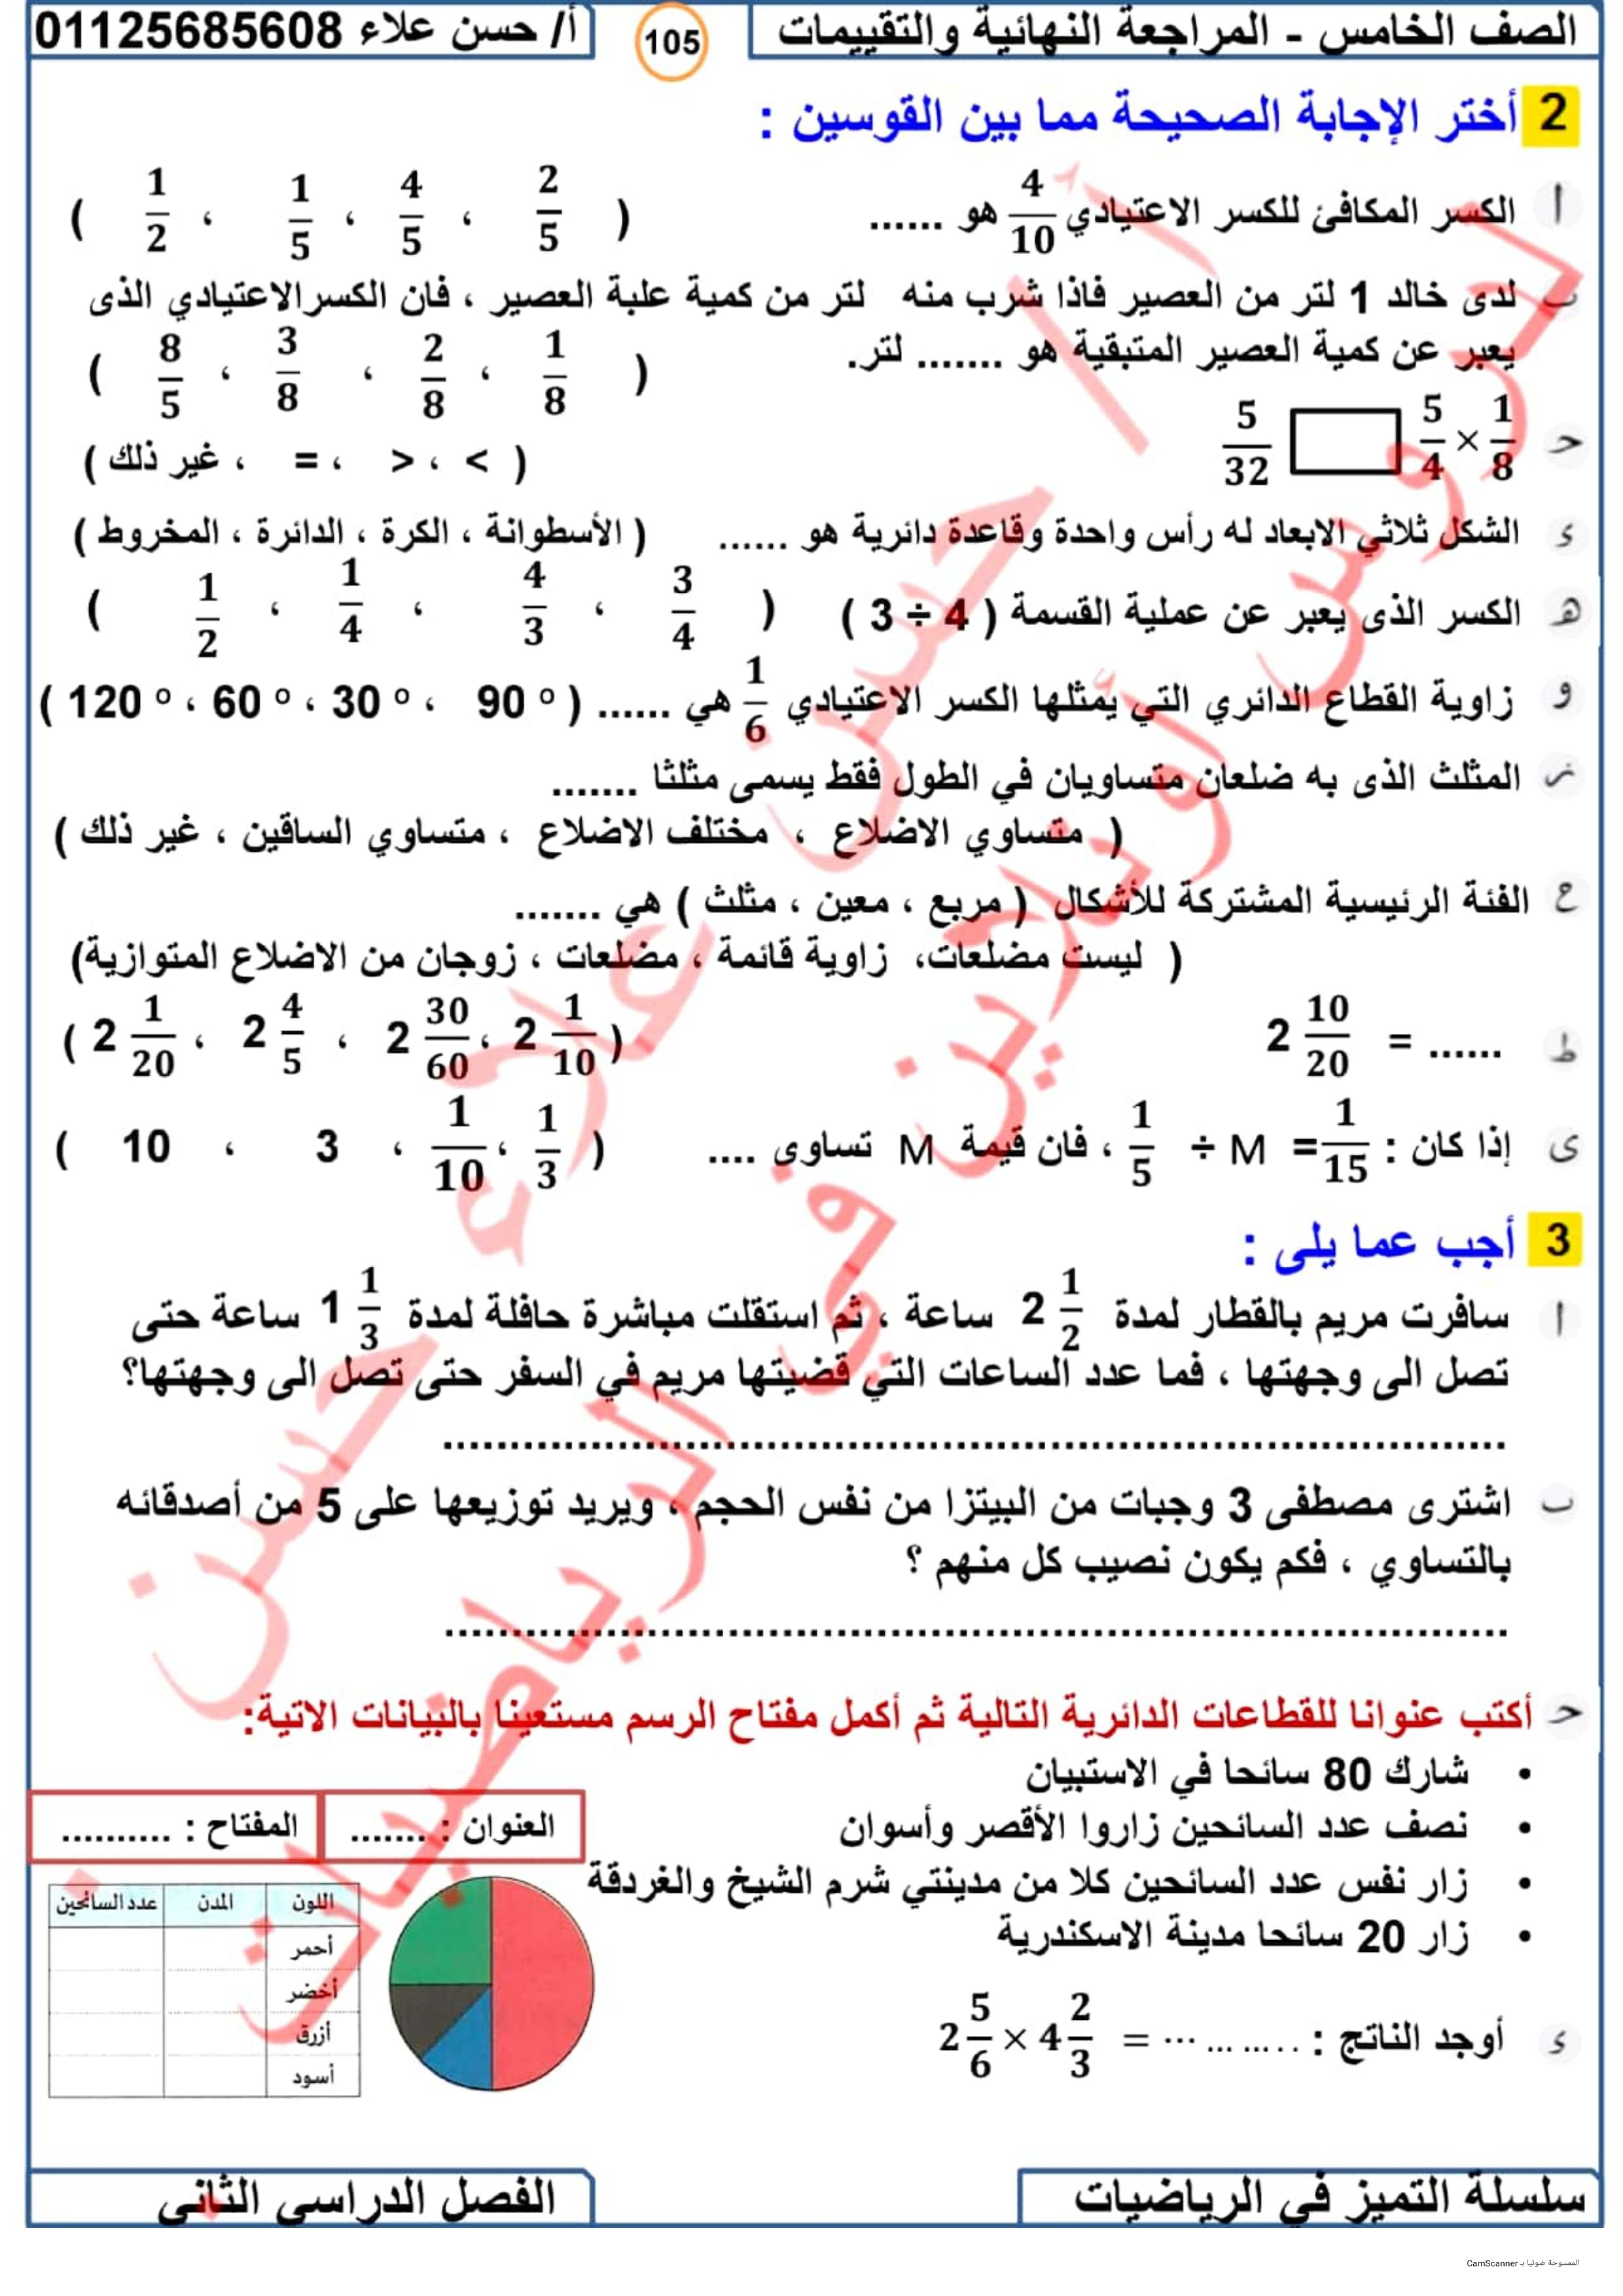 الصف الخامس - المراجعة النهائية والتقييمات
105
أ/ حسن علاء 01125685608
2 أختر الإجابة الصحيحة مما بين القوسين :
أ الكسر المكافئ للكسر الاعتيادي 4/10 هو ...... ( 2/5 ، 4/5 ، 1/5 ، 1/2 )
ب لدى خالد 1 لتر من العصير فاذا شرب منه لتر من كمية علبة العصير ، فان الكسرالاعتيادي الذى
يعبر عن كمية العصير المتبقية هو ....... لتر. ( 1/8 ، 2/8 ، 3/8 ، 8/5 )
حـ 1/8 × 5/4 □ 5/32 ( < ، > ، = ، غير ذلك )
ء الشكل ثلاثي الابعاد له رأس واحدة وقاعدة دائرية هو ...... ( الأسطوانة ، الكرة ، الدائرة ، المخروط )
هـ الكسر الذى يعبر عن عملية القسمة ( 3 ÷ 4 ) ( 3/4 ، 4/3 ، 1/4 ، 1/2 )
و زاوية القطاع الدائري التي يمثلها الكسر الاعتيادي 1/6 هي ...... ( 90 º ، 30 º ، 60 º ، 120 º )
ز المثلث الذى به ضلعان متساويان في الطول فقط يسمى مثلثا .......
( متساوي الاضلاع ، مختلف الاضلاع ، متساوي الساقين ، غير ذلك )
ح الفئة الرئيسية المشتركة للأشكال ( مربع ، معين ، مثلث ) هي .......
( ليست مضلعات، زاوية قائمة ، مضلعات ، زوجان من الاضلاع المتوازية)
ط 2 10/20 = ...... ( 2 1/10 ، 2 30/60 ، 2 4/5 ، 2 1/20 )
ى إذا كان : 1/5 ÷ M = 1/15 ، فان قيمة M تساوى .... ( 1/3 ، 1/10 ، 3 ، 10 )
3 أجب عما يلى :
أ سافرت مريم بالقطار لمدة 2 1/2 ساعة ، ثم استقلت مباشرة حافلة لمدة 1 1/3 ساعة حتى
تصل الى وجهتها ، فما عدد الساعات التي قضيتها مريم في السفر حتى تصل الى وجهتها؟
ب اشترى مصطفى 3 وجبات من البيتزا من نفس الحجم ، ويريد توزيعها على 5 من أصدقائه
بالتساوي ، فكم يكون نصيب كل منهم ؟
حـ أكتب عنوانا للقطاعات الدائرية التالية ثم أكمل مفتاح الرسم مستعينا بالبيانات الاتية:
• شارك 80 سائحا في الاستبيان
• نصف عدد السائحين زاروا الأقصر وأسوان
• زار نفس عدد السائحين كلا من مدينتي شرم الشيخ والغردقة
• زار 20 سائحا مدينة الاسكندرية
العنوان : ........
المفتاح : ..........
اللون المدن عدد السائحين
أحمر
أخضر
أزرق
أسود
ء أوجد الناتج : 2 5/6 × 4 2/3 = ... ... .....
سلسلة التميز في الرياضيات
الفصل الدراسي الثاني
الممسوحة ضوئيا بـ CamScanner
أ / حسن علاء حسن
دروس أونلاين في الرياضيات